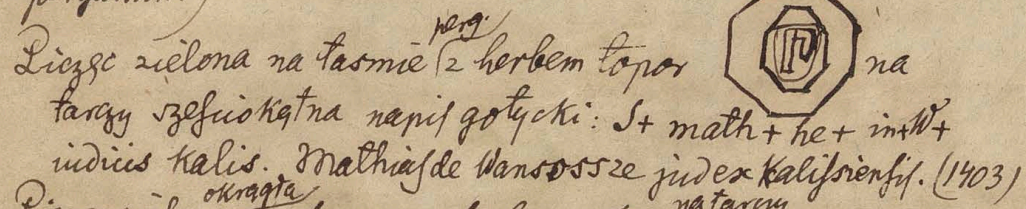 perg.
Pieczęc zielona na taśmie (z herbem topor na
tarczy sześciokątna napis gotycki: S+ math+ he+ in+W+
iudicis kalis. Mathias de Wansossze judex Kalissiensis. (1403)
okrągła
na tarczy